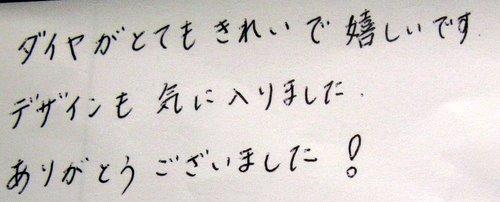 ダイヤがとてもきれいで嬉しいです.
デザインも気に入りました.
ありがとうございました!